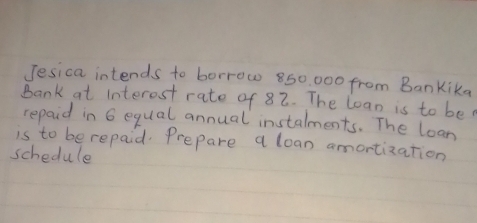 Jesica intends to borrow 850,000 from Bankika
Bank at interest rate of 8%. The Loan is to be
repaid in 6 equal annual instalments. The loan
is to be repaid. Prepare a loan amortization
schedule